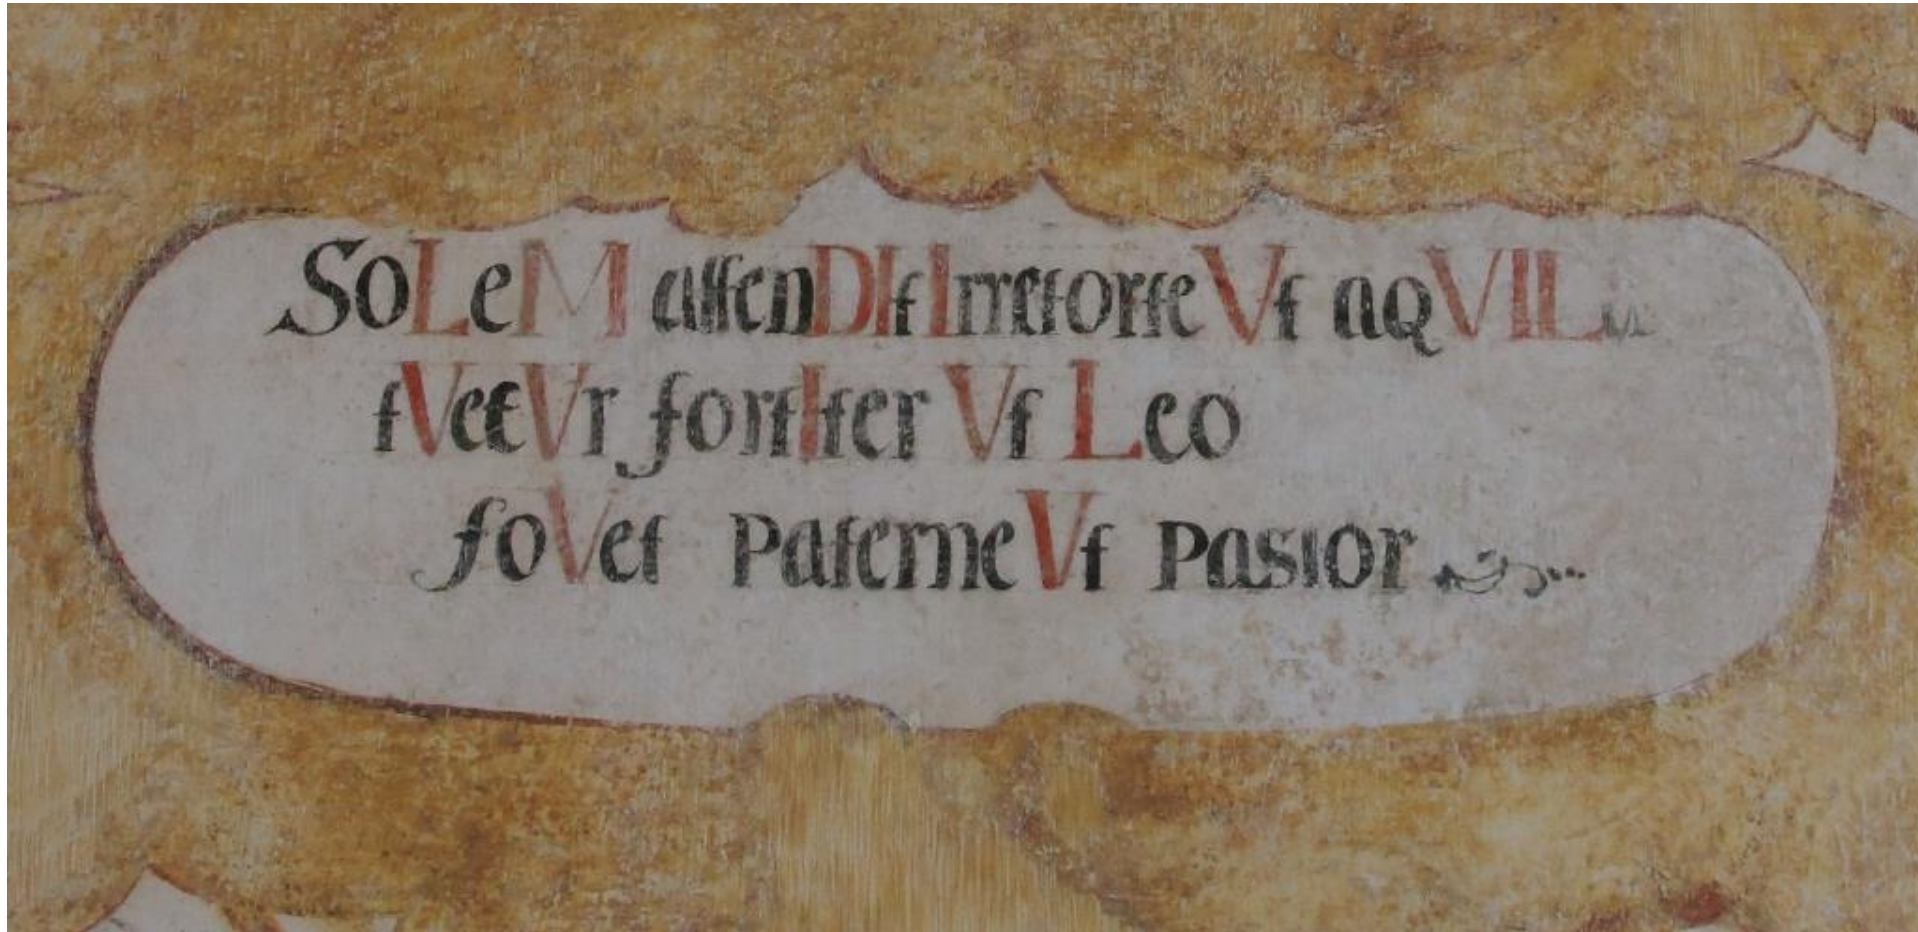 SoLeM attenDIt IrretorteVt aqVILa
tVetVr fortIter Vt Leo
foVet paterneVt pastor